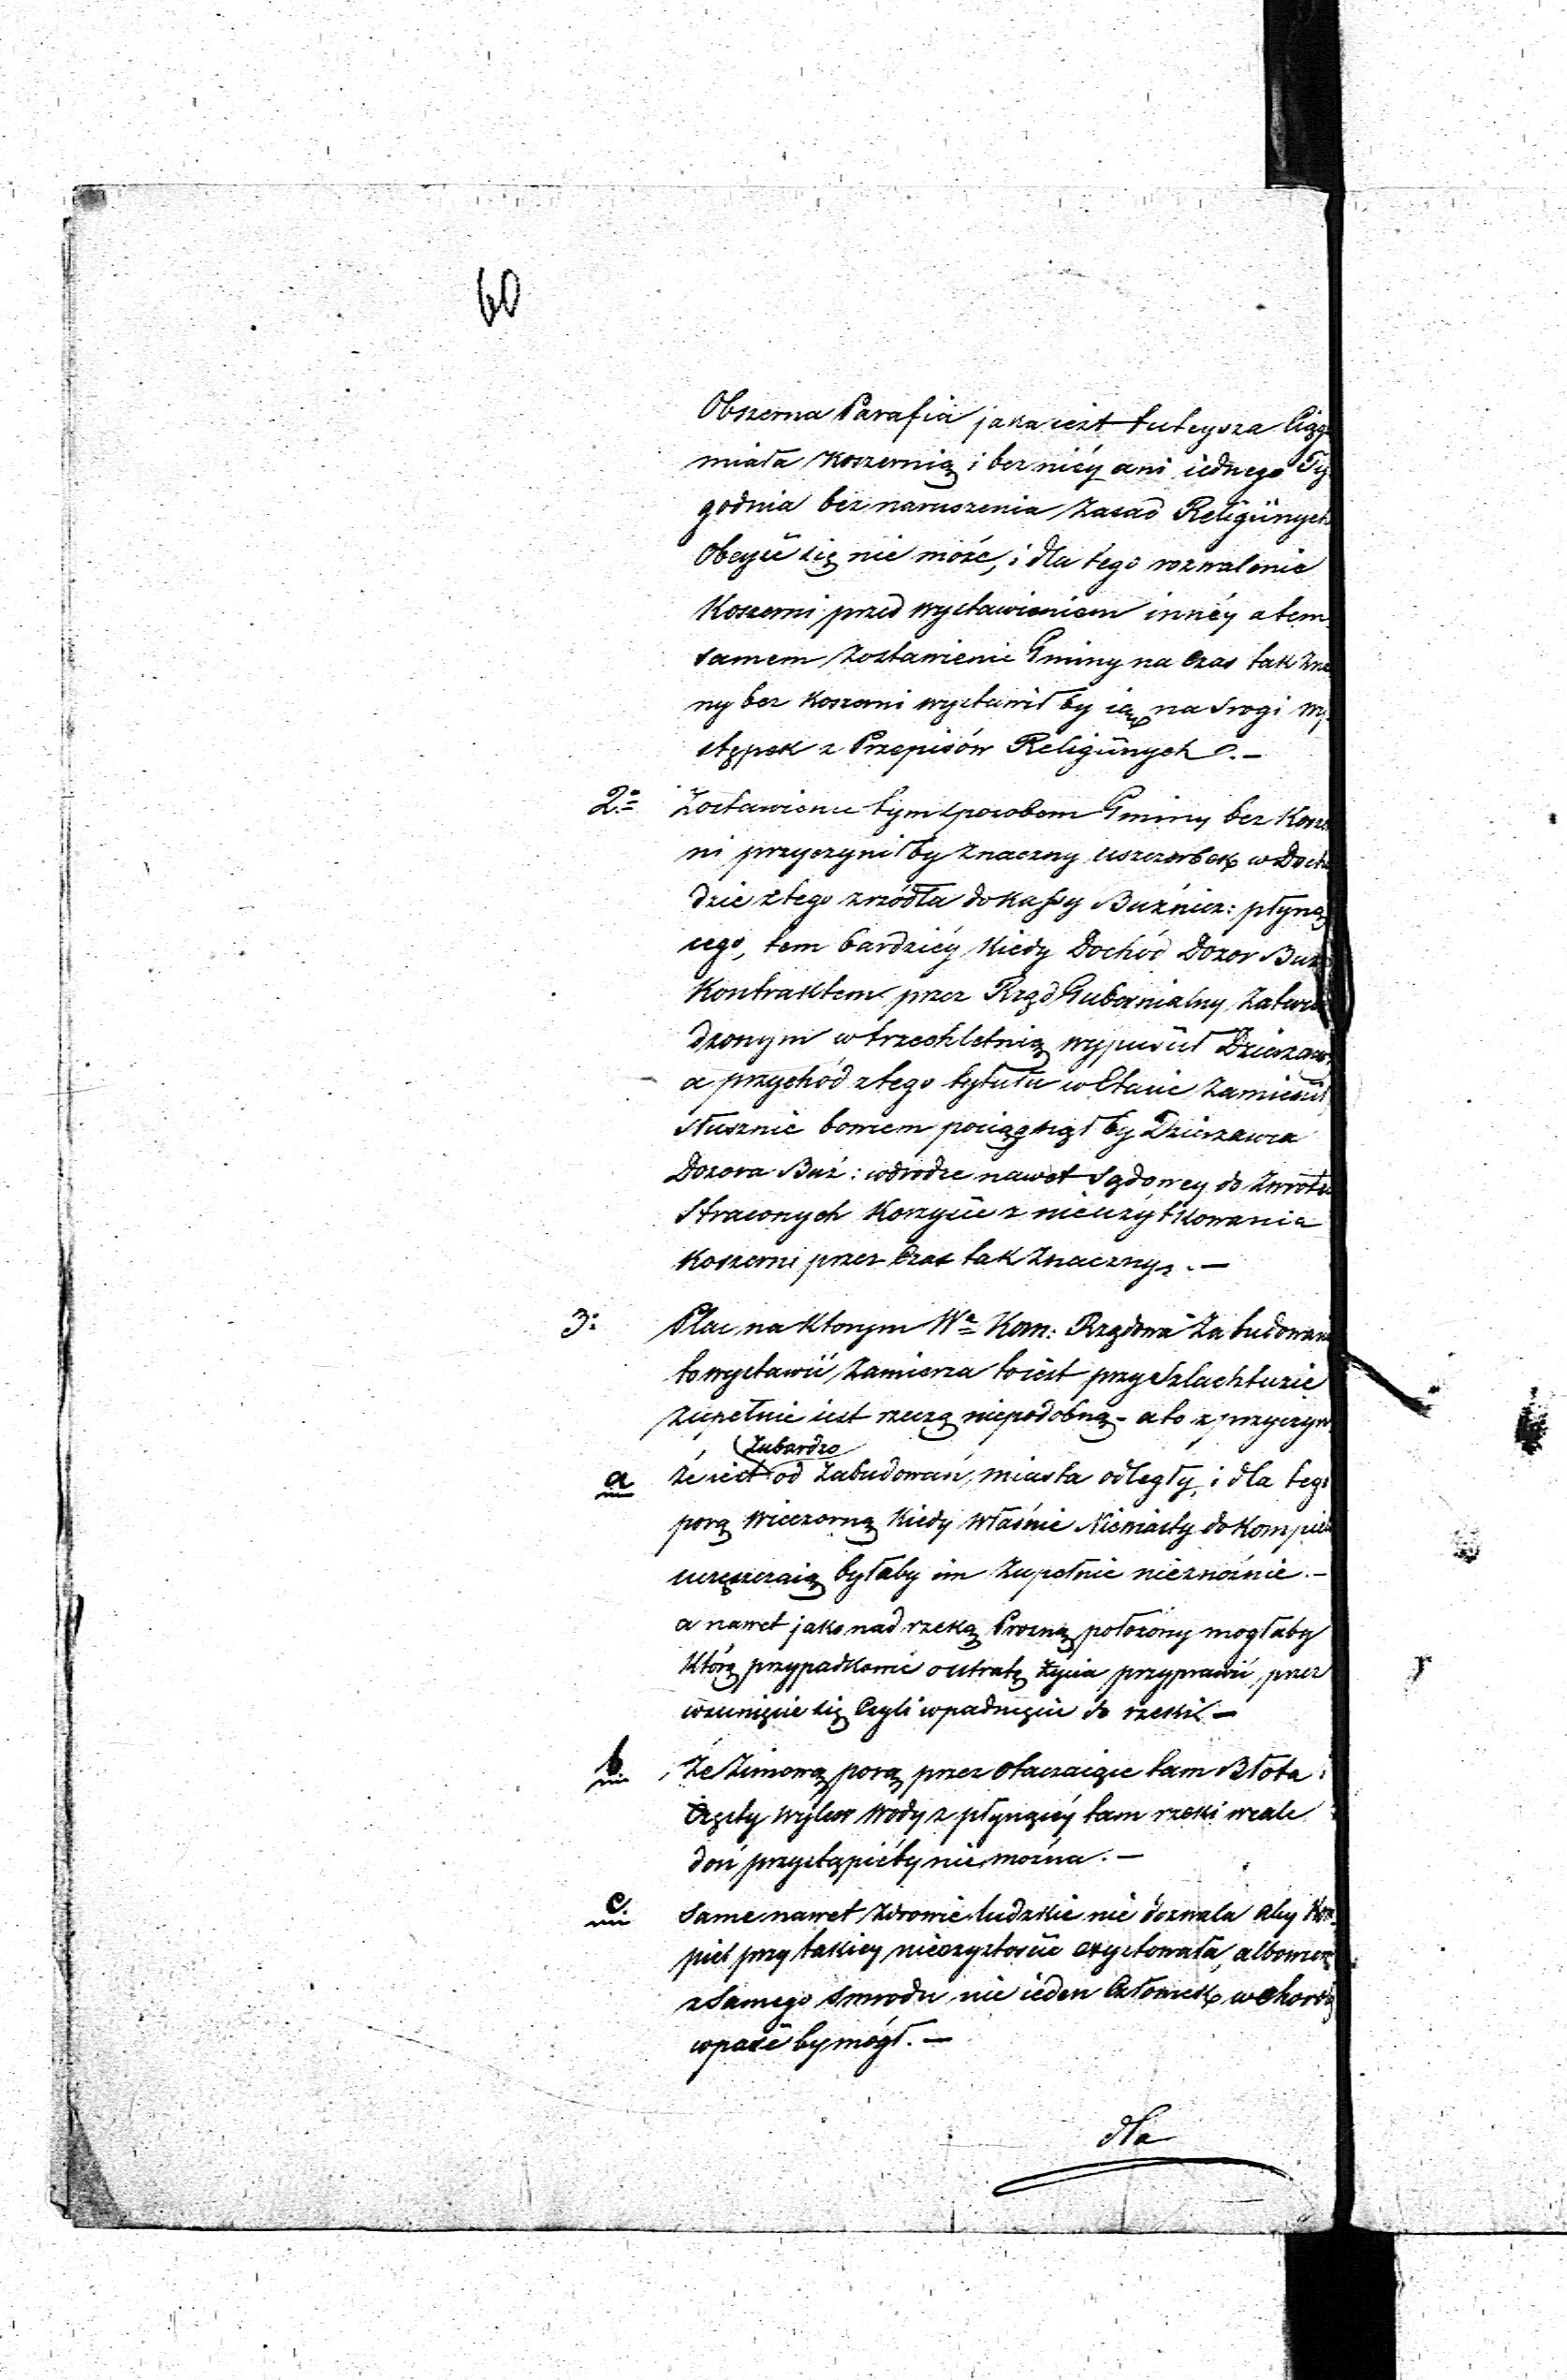 60
Obszerna Parafia jaka iest tuteysza Ciąg
miała Koszernią i bez niéy ani iednego Ty
godnia bez naruszenia Zasad Religiinych
Obeyść się nie może, i dla tego rozwalenie
Koszerni przed wystawieniem innéy a tem
samem Zostawienie Gminy na Czas tak Zna
ny bez Koszerni wystawił by ią na srogi wy
stępek z Przepisów Religiinych.–
2o Zostawienie tym sposobem Gminy bez Kosz
ni przyczynił by Znaczny uszczerbek w Docho
dzie z tego zrzódła do Kassy Bużnicz: płyną
cego, tem bardziéy Kiedy Dochód Dozor Buż
Kontraktem przez Rząd Gubernialny Zatwier
dzonym w trzechletnią wypuścił Dzierzaw
a przychód z tego tytułu w Etacie Zamieścił
słusznie bowiem pociągnął by Dzierzawca
Dozora Buż: w drodze nawet Sądowey do Zwrotu
Straconych Korzyści z nieużytkowania
Koszerni przez Czas tak Znaczny.–
3o Plac na Którym Wa Kom: Rządowa Zabudowan
to wystawić Zamierza to iest przy Szlachtuzie
Zupełnie iest rzeczą niepodobną – a to z przyczyn
Zubardzo
a że iest od Zabudowań miasta odległy, i dla tego
porą wieczorną Kiedy właśnie Niewiasty do Kompieli
uczęszczaią byłaby im Zupełnie nieznośnie.–
a nawet jako nad rzeką Prosną położony mogłaby
Którę przypadkowie o utratę Życia przyprawić, przez
wsunięcie się Czyli wpadnięcie do rzeki –
b że Zimową porą przez otaczaiące tam Błota i
Częsty wylew Wody z płynącéy tam rzeki wcale
doń przystąpićby nie można.–
c same nawet Zdrowie ludzkie nie dozwala aby Kom
piel przy takiey nieczystości exystowała, albowiem
z samego smrodu nie ieden Człowiek w Chorobę
wpaść by mógł.–
dla